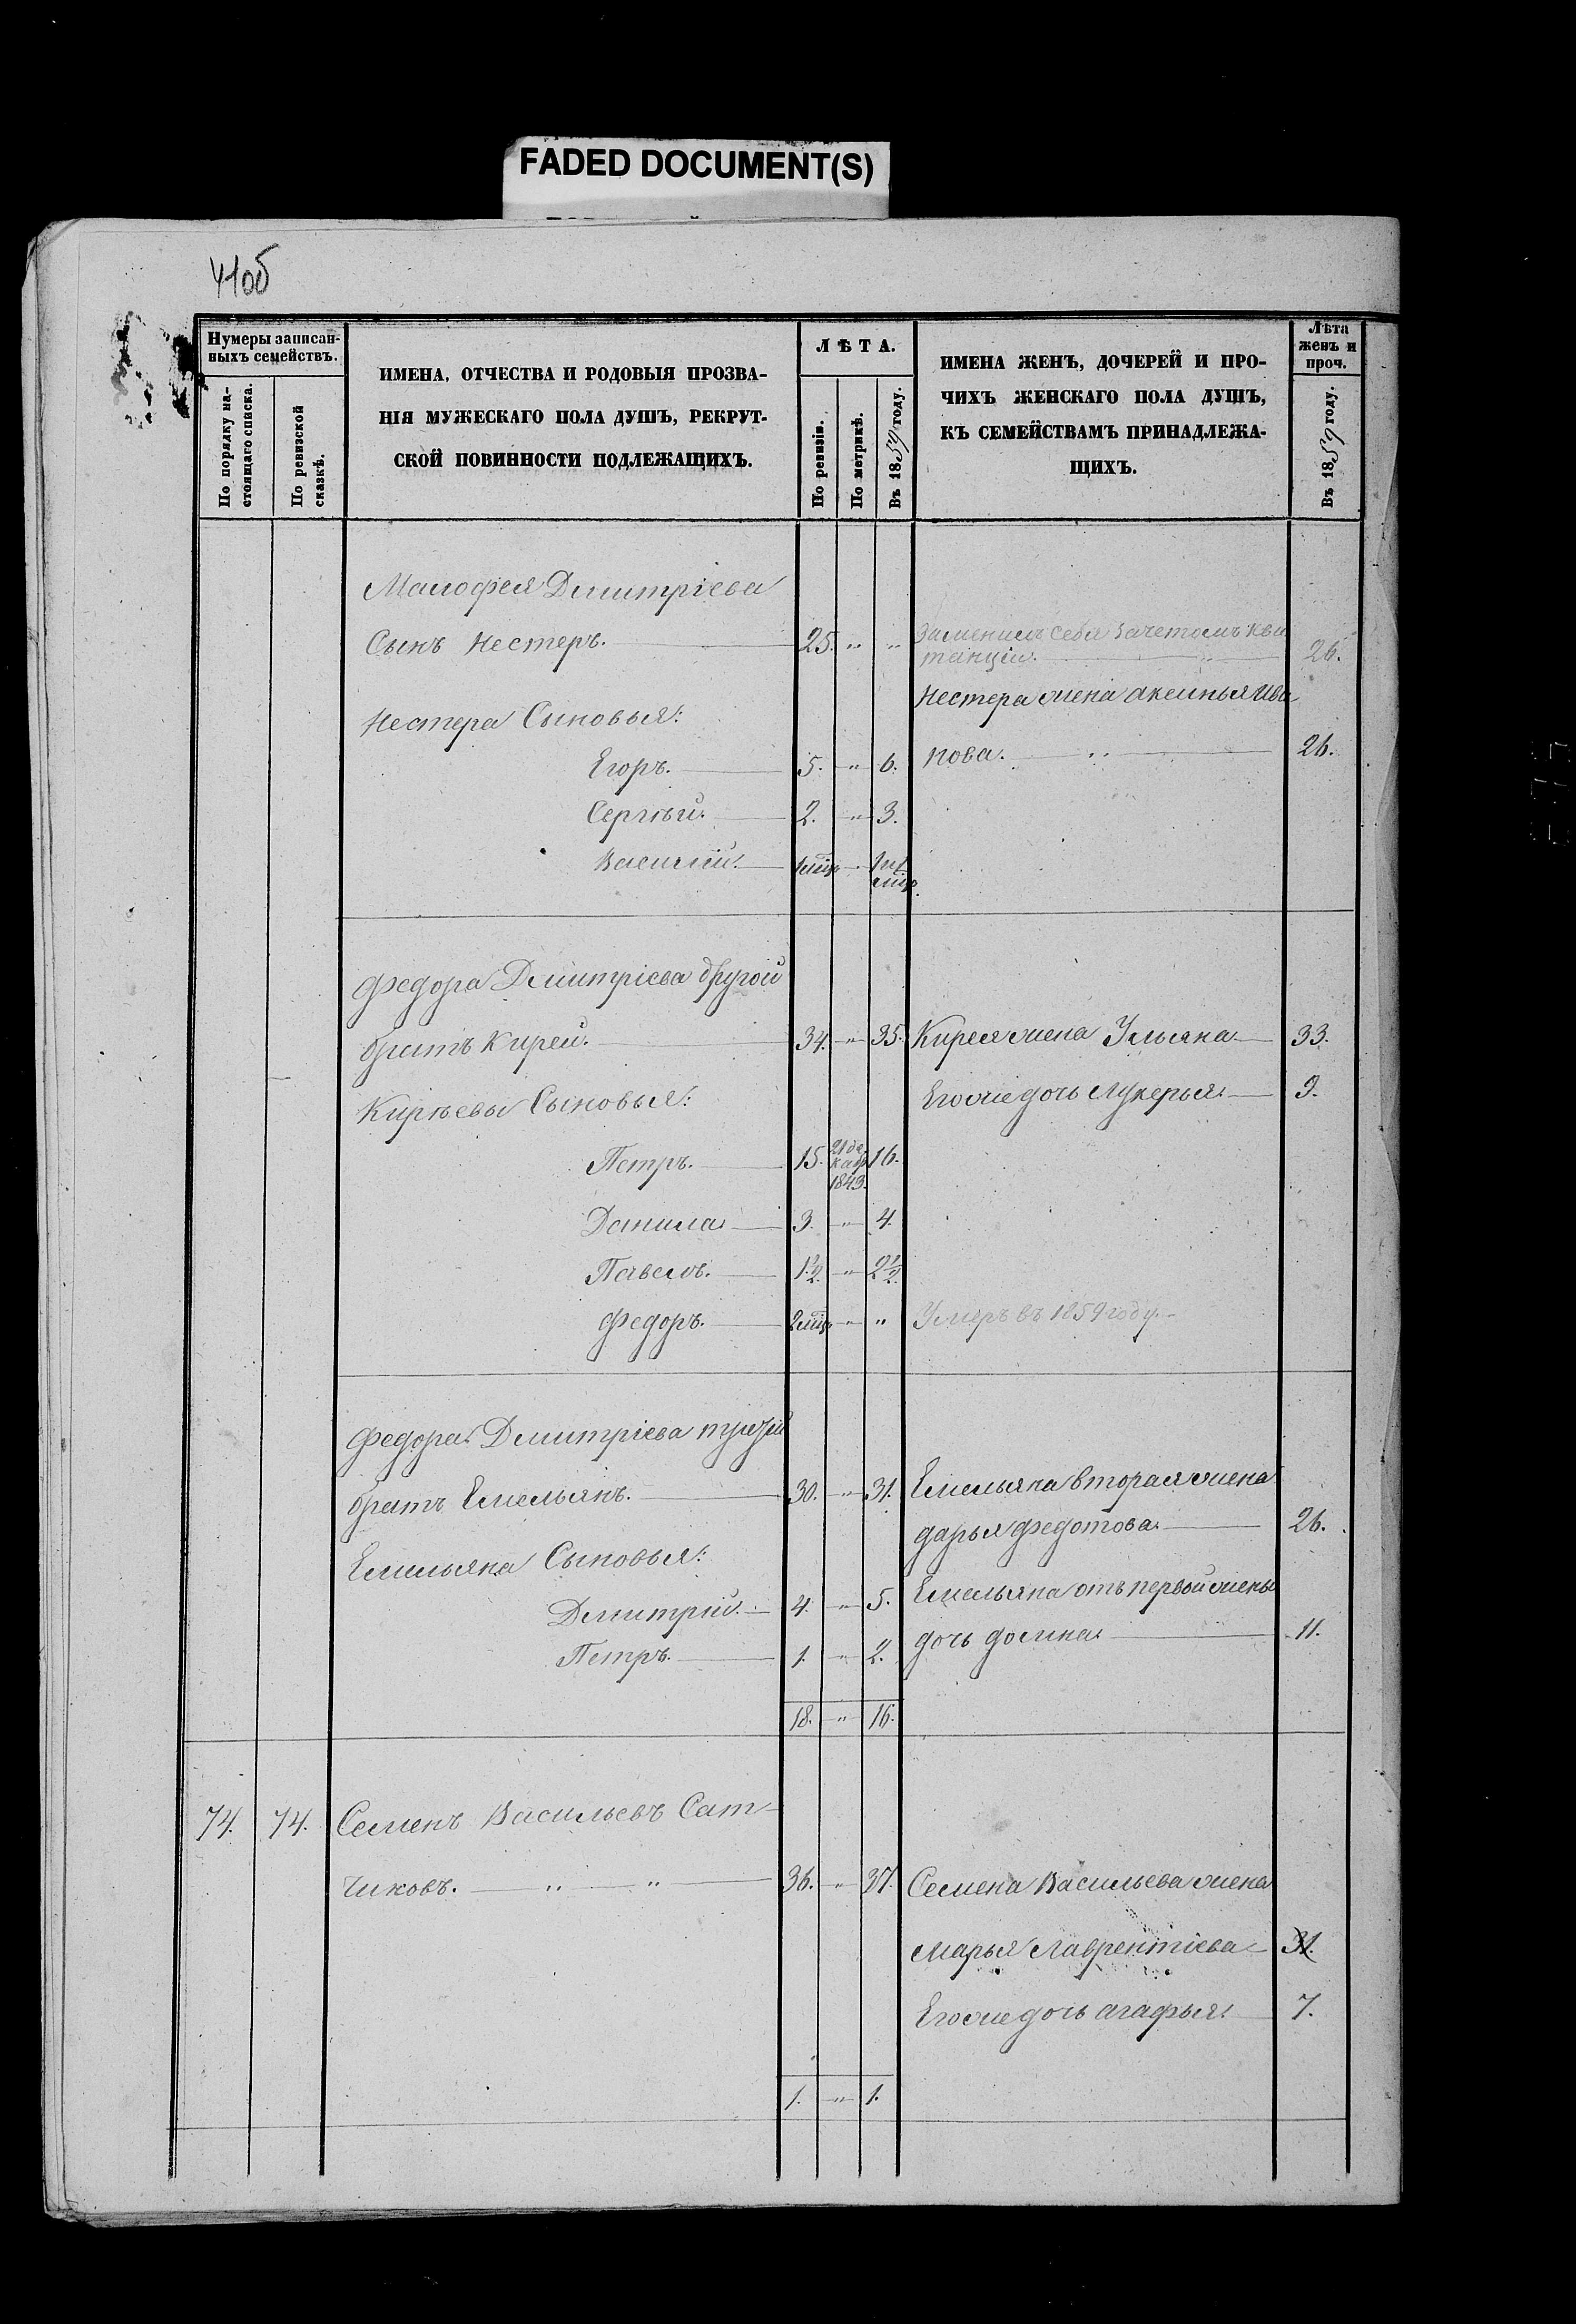 FADED DOCUMENT(S)
41об
Нумеры записан-
ныхъ семействъ.
По порядку на-
стоящаго списка.
По ревизской
сказкѣ.
ИМЕНА, ОТЧЕСТВА И РОДОВЫЯ ПРОЗВА-
НІЯ МУЖЕСКАГО ПОЛА ДУШЪ, РЕКРУТ-
СКОЙ ПОВИННОСТИ ПОДЛЕЖАЩИХЪ.
ЛѢТА.
По ревизіи.
По метрикѣ.
Въ 1859 году.
ИМЕНА ЖЕНЪ, ДОЧЕРЕЙ И ПРО-
ЧИХЪ ЖЕНСКАГО ПОЛА ДУШЪ,
КЪ СЕМЕЙСТВАМЪ ПРИНАДЛЕЖА-
ЩИХЪ.
Лѣта
женъ и
проч.
Въ 1859 году.
Малофея Дмитріева
Сынъ Нестеръ. 25. " " Заменилъ себя зачетомъ кви
танціи. " 26.
Нестера жена Аксинья Ива
Нестера Сыновья:
нова. " 26.
Егоръ. 5. " 6.
Сергѣй. 2. " 3.
Василій.
Федора Дмитріева другой
братъ Кирей. 34. " 35. Кирея жена Ульяна 33.
Кирѣевы Сыновья: Егоже дочь Лукерья. 9.
Петръ. 15. 21 де
кабр
1843. 16.
Данила 3. " 4.
Павелъ. 1½. " 2½.
Федоръ. " " Умеръ въ 1859 году.
Федора Дмитріева третій
братъ Емельянъ. 30. " 31. Емельяна вторая жена
дарья Федотова. 26.
Емельяна Сыновья:
Емельяна отъ первой жены
Дмитрій. 4. " 5.
дочь домна. 11.
Петръ. 1. " 2.
18. " 16.
74. 74. Семенъ Васильевъ Сат-
чиковъ. " " 36. " 37. Семена Васильева жена
Марья Лаврентіева 31.
Егоже дочь агафья. 7.
1. " 1.